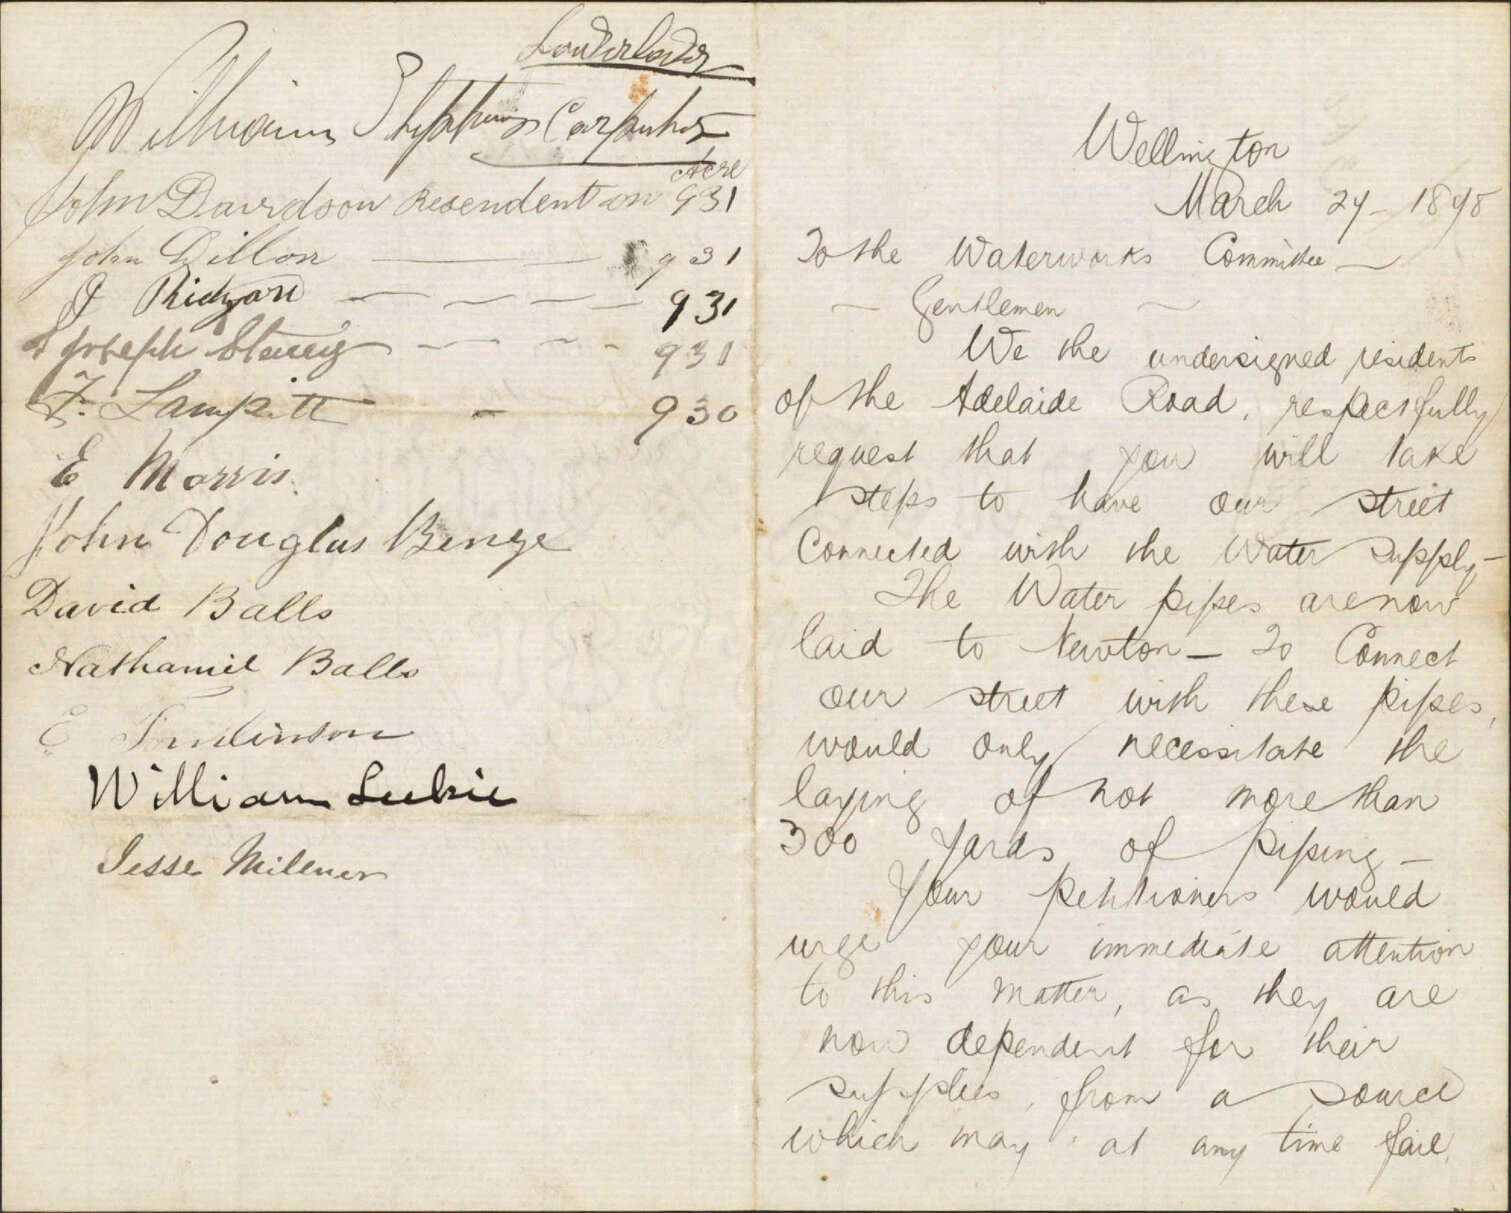 Wellington
March 24 - 1878
To the Waterworks Committee -
- Gentlemen -
We the undersigned residents
of the Adelaide Road, respectfully
request that you will take
steps to have our street
Connected with the Water supply -
The Water pipes are now
laid to Newton - To Connect
our street with these pipes,
would only necessitate the
laying of not more than
300 yards of piping -
Your petitioners would
urge your immediate attention
to this matter, as they are
now dependent for their
supplies, from a source
which may at any time fail.
William Carpenter
Acre
John Davidson Resendent on 931
John Dillon 931
J Ridgard - - - - - 931
Joseph Stacey - - - - 931
F. Lampitt - 930
E Morris.
John Douglas Benge
David Balls
Nathaniel Balls
E Tomlinson
William Luckie
Jesse Milener